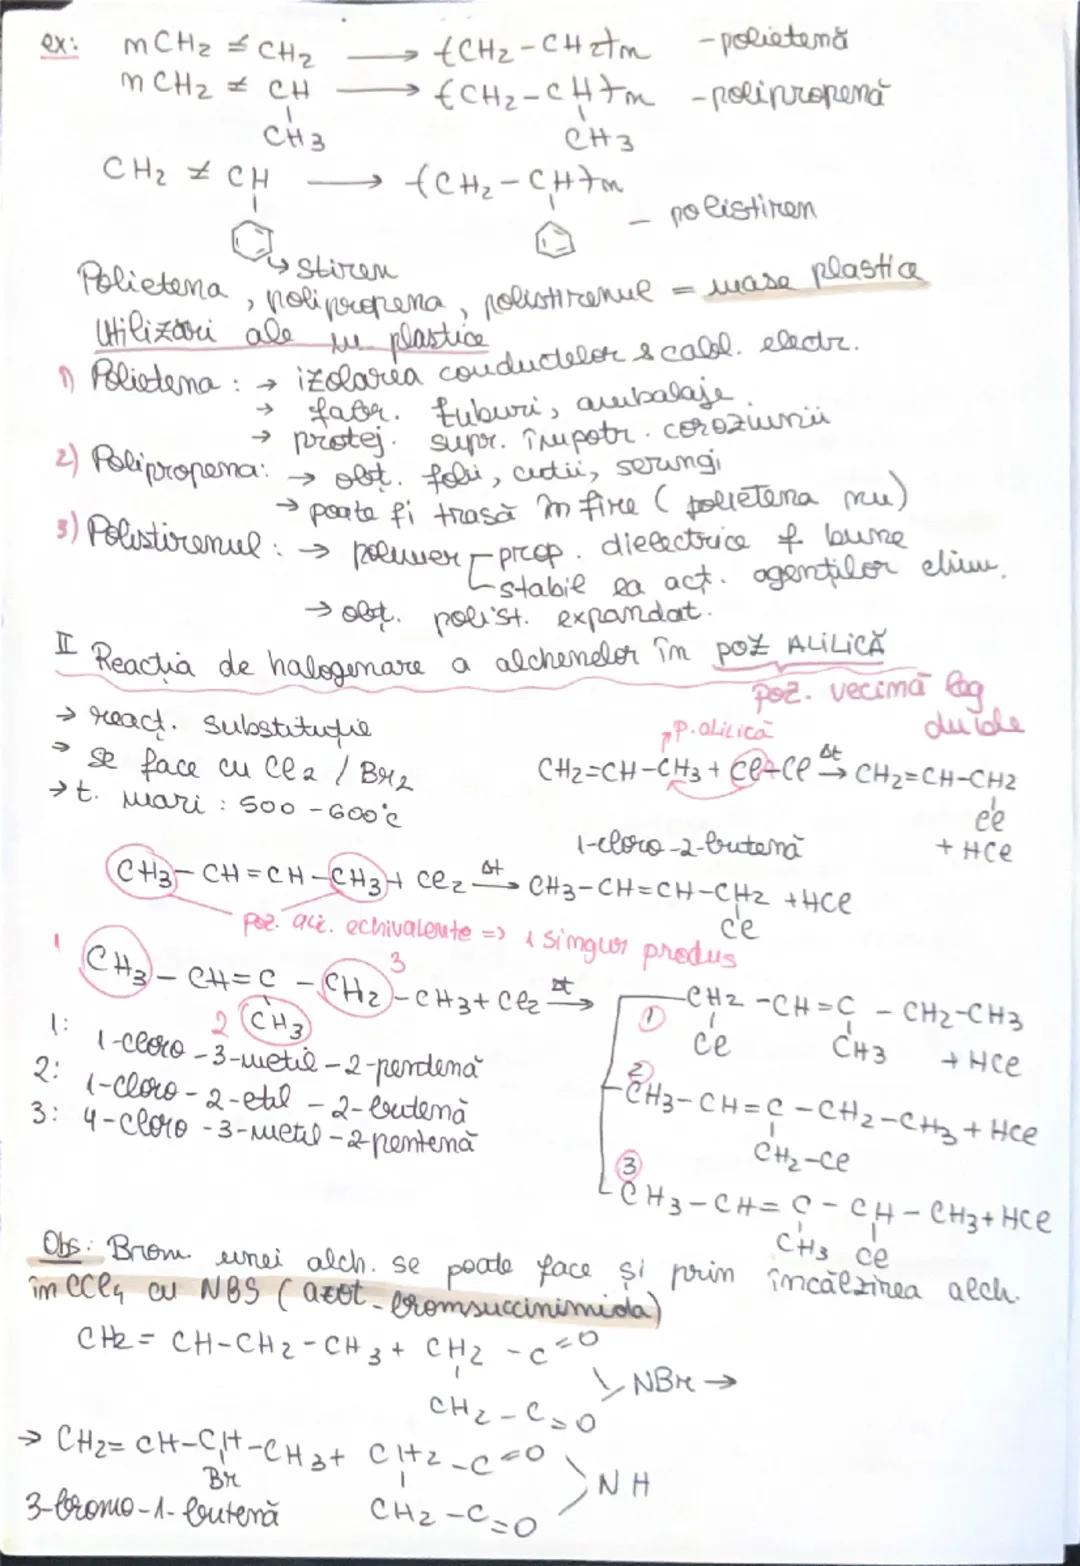 ex: nCH2 = CH2 → -(CH2-CH2)-n - polietenă
nCH2 = CH → -(CH2-CH)-n - polipropenă
CH3 CH3
CH2 = CH → -(CH2-CH)-n
- polistiren
→ stiren
Polietena, polipropena, polistirenul = mase plastice
Utilizări ale m plastice
1) Polietena: → izolarea conductelor & cabl. electr.
→ fabr. tuburi, ambalaje
→ protej. supr. împotr. coroziunii
2) Polipropena: → obt. folii, cutii, seringi
→ poate fi trasă în fire (polietena nu)
3) Polistirenul: → polimer prop. dielectrice f bune
stabil la acț. agenților chim.
→ obț. polist. expandat.
II Reacția de halogenare a alchenelor în poz ALILICĂ
poz. vecină leg duble
→ react. substituție
→ se face cu Cl2 / Br2
→ t. mari: 500-600°C
p. alilică
CH2=CH-CH3 + Cl-Cl Δt→ CH2=CH-CH2
Cl
+ HCl
1-cloro-2-butenă
CH3-CH=CH-CH3 + Cl2 Δt→ CH3-CH=CH-CH2 + HCl
Cl
poz. alil. echivalente => 1 singur produs
1 CH3-CH=C-CH2-CH3 + Cl2 Δt→
3
2 CH3
① CH2-CH=C-CH2-CH3
Cl CH3 + HCl
② CH3-CH=C-CH2-CH3 + HCl
CH2-Cl
③ CH3-CH=C-CH-CH3 + HCl
CH3 Cl
1: 1-cloro-3-metil-2-pentenă
2: 1-cloro-2-etil-2-butenă
3: 4-cloro-3-metil-2-pentenă
Obs: Brom. unei alch. se poate face și prin încălzirea alch.
în CCl4 cu NBS (azot-bromsuccinimida)
CH2=CH-CH2-CH3 + CH2-C=O
NBr →
CH2-C=O
→ CH2=CH-CH-CH3 + CH2-C=O
Br
NH
3-bromo-1-butenă CH2-C=O